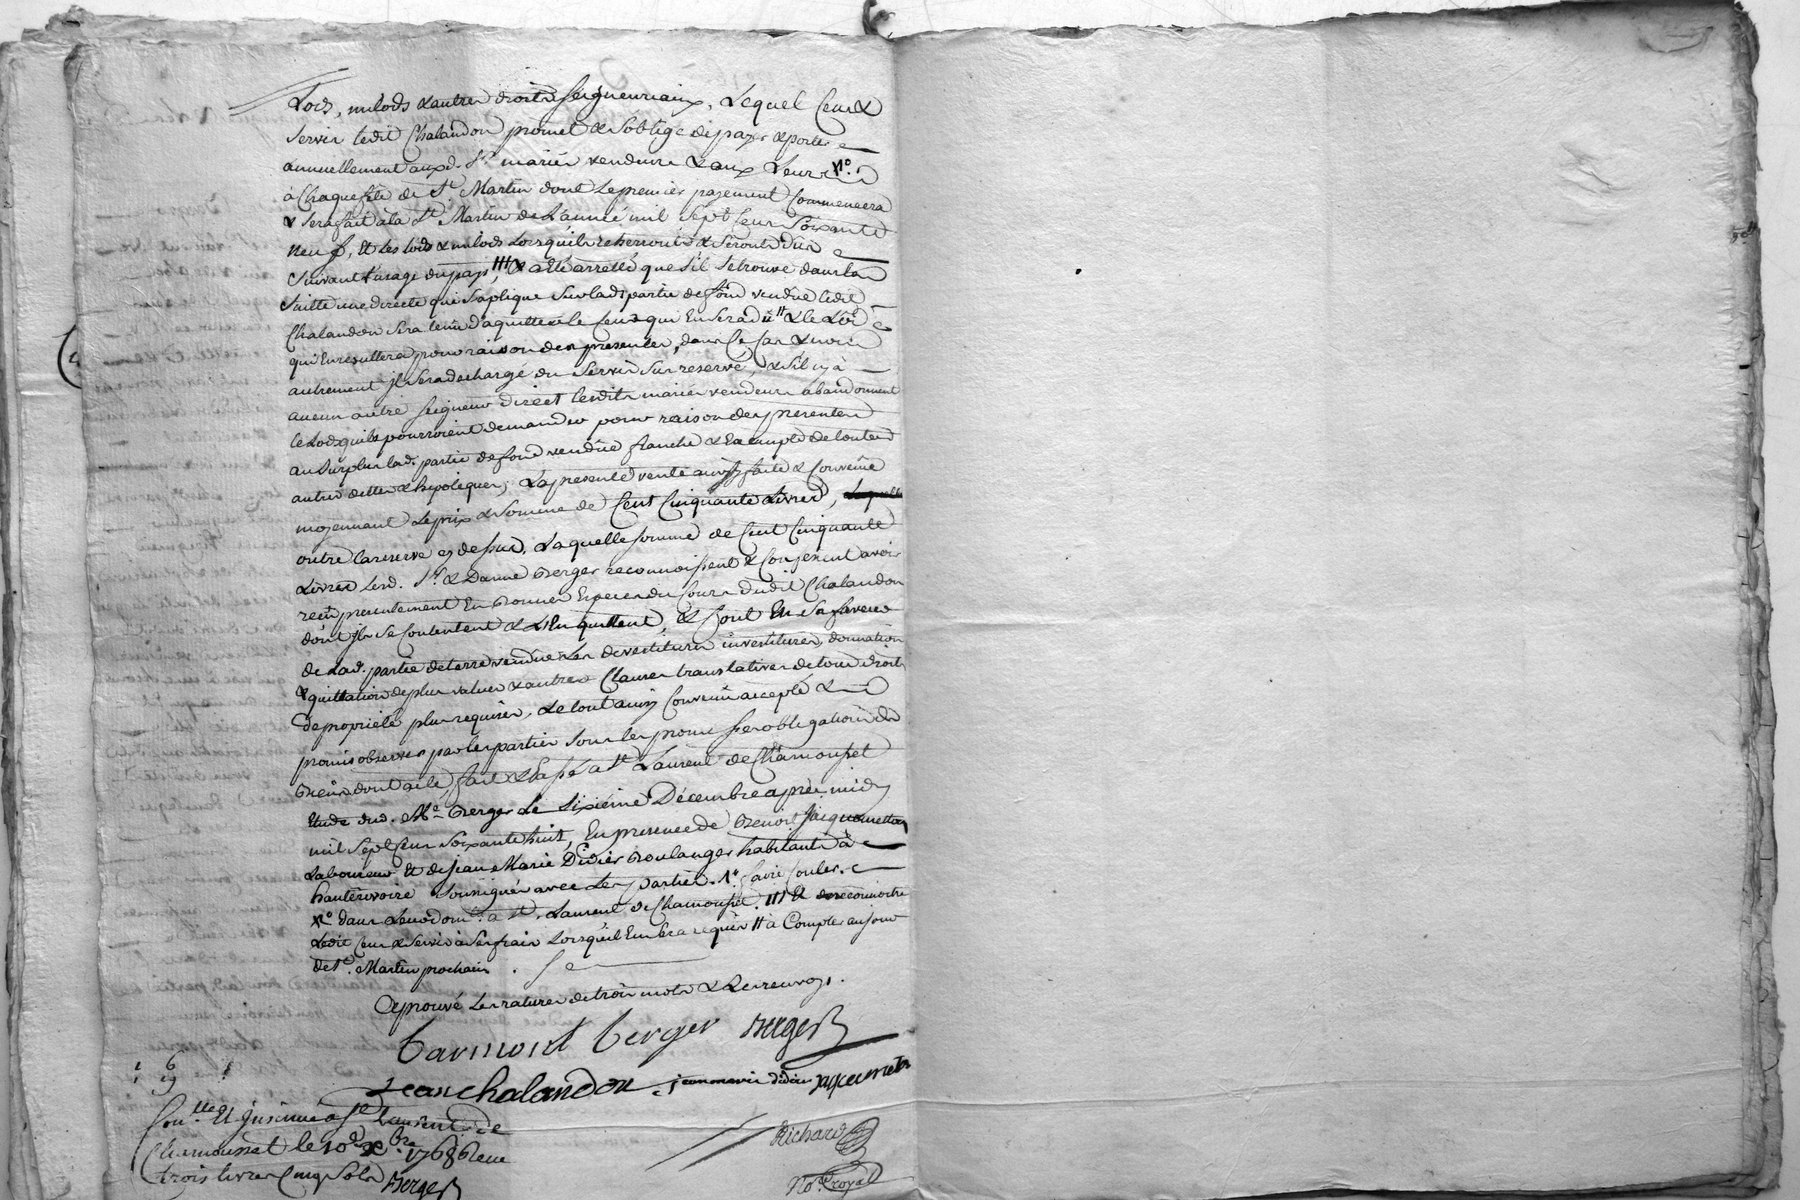 Lods, milods & autres droits seigneuriaux, Lequel Cens &
servis ledit Chalandon promet & soblige de payer & porter
annuellement auxd. Srs mariés vendeurs & aux Leurs Xo.
à Chaque fête de St Martin dont le premier payement Commencera
& sera fait a la St Martin de Lannée mil sept Cens Soixante
neuf, Et les lods & milods Lorsquils & seront dus
suivant l'usage du pays, IIII & a été arretté que s'il se trouve dans la
suitte une directe qui s'aplique sur lad. partie de fond vendue ledit
Chalandon sera tenu d'aquitter le Cens qui En sera dû II & le Lod
qui En resultera pour raison des presentes, dans Ce Cas & non
autrement jl sera dechargé du servis sus reservé, & s'il y à
aucun autre seigneur direct lesdits mariés vendeurs abandonnent
le Lods quils pourroient demander pour raison des presentes
au surplus lad. partie de fond vendue franche & Exempte de toutes
autres dettes & hipoteques, La presente vente ainsy faite & Convenüe
moyennant Le prix & Somme de Cent Cinquante Livres, Laquelle
outre la reserve cy dessus, Laquelle somme de Cent Cinquante
Livres Lesd. Sr & Damme Berger reconnoissent & Confessent avoir
reçû presentement En bonnes Especes du Cours dudit Chalandon
dont jls se Contentent & L'En quittent, & font En sa faveur
de Lad. partie de terre vendue Les devestitures investitures, donnation
& quittation de plus values & autres Clauses translatives de tous droits
de proprieté plus requises, Le tout ainsy Convenu accepté &
promis observer par les parties sous les promesses obligations de
Biens dont acte, fait & Passé a St Laurent de Chamousset
Etude dud. Me Berger Le sixieme Décembre après midy
mil sept Cens soixante huit, En presence de Benoit Jacquemetton
Laboureur Et de Jean Marie Didier Boulanger habitants à
hauterivoire soussignés avec Les parties. 1o. faire Couler.
Xo dans Leur dom.e a St. Laurent de Chamousset. III & de reconnoitre
Ledit Cens & servis à ses frais Lorsquil En sera requis II à Compte au jour
de St. Martin prochain.
Aprouvé Les ratures de trois mots & Les renvoys.
Barmont berger Berger
Jean Chalandon jean marie didier jaquemeton
Con.lle Et jnsinué a St Laurent de
Chamousset le 10e Xbre 1768 Reçu
trois livres Cinq Sols Berger
Richard
No. Royal